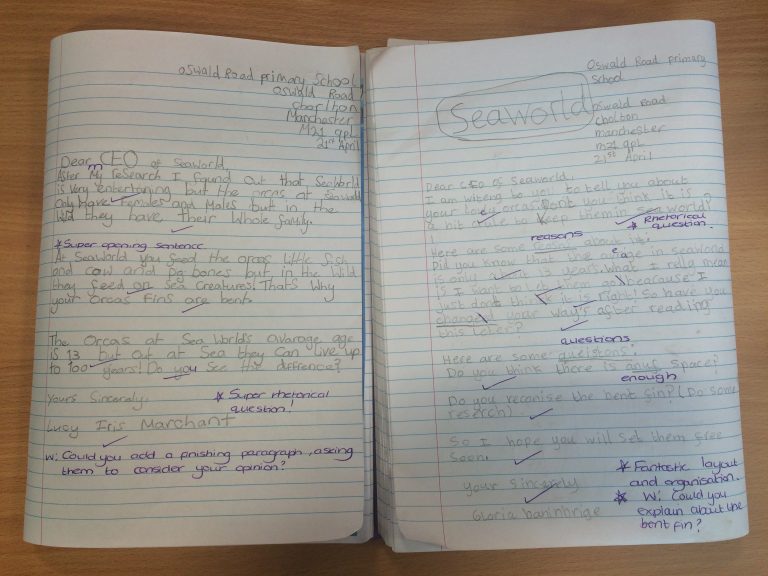 Oswald Road primary School
Oswald Road
Chorlton
Manchester
M21 9PL
21st April
Dear CEO of Seaworld,
After My research I found out that SeaWorld
is very entertaning but the orcas at Seaworld
Only Have Females and Males but in the
Wild they have their whole family.
* Super opening sentence
At SeaWorld you feed the orcas little fish
and cow and pig bones but in the wild
they feed on Sea Creatures! That's Why
your Orcas Fins are bent.
The Orcas at Sea World's avarage age
is 13 but out at Sea they Can live up
to 100 years! Do you See the diffrence?
Yours Sincerely,
* Super rhetorical
question!
Lucy Iris Marchant
W: Could you add a finishing paragraph, asking
them to consider your opinion?
Oswald Road primary
School
Seaworld
oswald Road
cholton
manchester
m21 9pl
21st April
Dear CEO of Seaworld.
I am writeing to you to tell you about
your orcas. Dont you think it is
a bit to keep them in sea world?
* Rhetorical
question.
reasons
Here are some about it.
Did you know that the age in seaworld
is only 13 years. What I rella mean
is I want to let them because I
just don't think it is right! So have you
changed your way's after reading
this leter?
questions
Here are some
Do you think there is anuf space?
enough
Do you reconise the bent fin? (Do some
reserch)
So I hope you will set them free
soon.
* Fantastic layout
and organisation.
Your Sincerely
* W: Could you
explain about the
bent fin?
Gloria